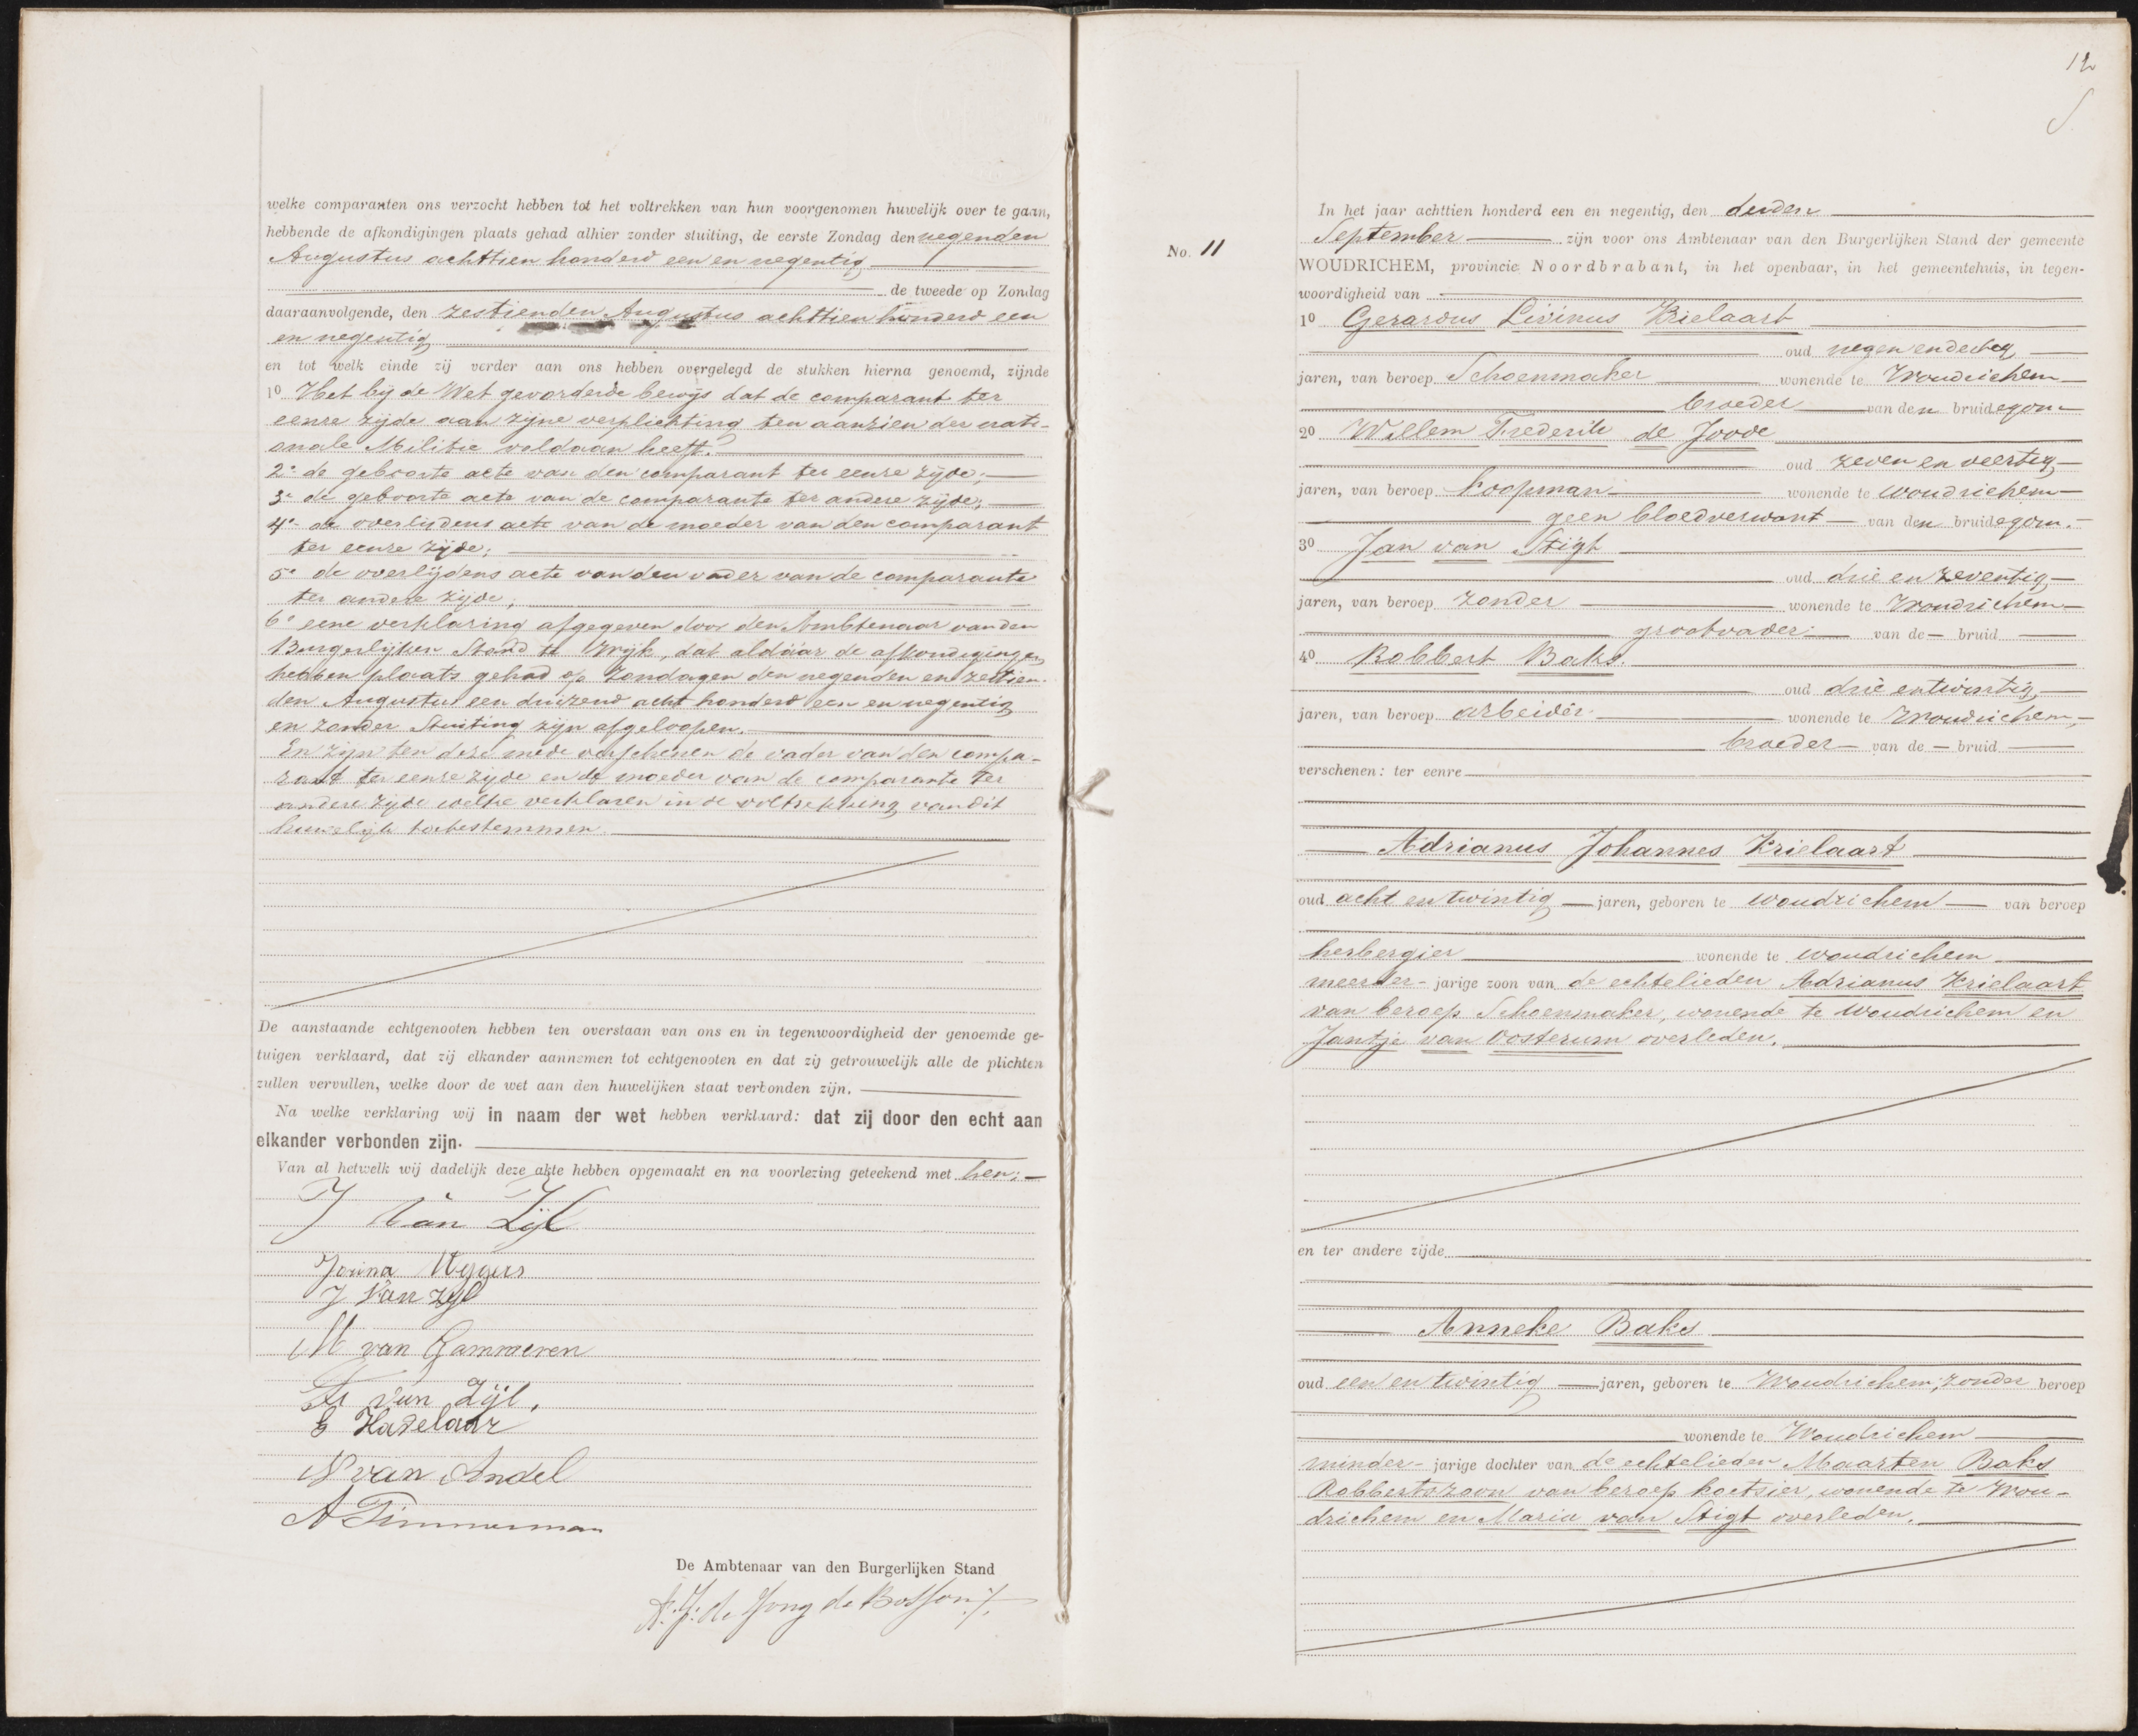 welke comparanten ons verzocht hebben tot het voltrekken van hun voorgenomen huwelijk over te gaan,
hebbende de afkondigingen plaats gehad alhier zonder stuiting, de eerste Zondag den negenden
Augustus achttien honderd een en negentig
de tweede op Zondag
daaraanvolgende, den zestienden Augustus achttien honderd een
en negentig
en tot welk einde zij verder aan ons hebben overgelegd de stukken hierna genoemd, zijnde
1o Het bij de Wet gevorderde bewijs dat de comparant ter
eenre zijde aan zijne verplichting ten aanzien der nati-
onale Militie voldaan heeft.
2e de geboorte acte van den comparant ter eenre zijde;
3e de geboorte acte van de comparante ter andere zijde;
4e de overlijdens acte van de moeder van den comparant
ter eenre zijde;
5e de overlijdens acte van den vader van de comparante
ter andere zijde;
6e eene verklaring afgegeven door den Ambtenaar van den
Burgerlijken Stand te Wijk, dat aldáár de afkondigingen
hebben plaats gehad op Zondagen den negenden en zestien-
den Augustus een duizend acht honderd een en negentig
en zonder Stuiting zijn afgeloopen.
En zijn ten deze mede verschenen de vader van den compa-
rant ter eenre zijde en de moeder van de comparante ter
andere zijde welke verklaren in de voltrekking van dit
huwelijk toetestemmen.
De aanstaande echtgenooten hebben ten overstaan van ons en in tegenwoordigheid der genoemde ge-
tuigen verklaard, dat zij elkander aannemen tot echtgenooten en dat zij getrouwelijk alle de plichten
zullen vervullen, welke door de wet aan den huwelijken staat verbonden zijn.
Na welke verklaring wij in naam der wet hebben verklaard: dat zij door den echt aan
elkander verbonden zijn.
Van al hetwelk wij dadelijk deze akte hebben opgemaakt en na voorlezing geteekend met hen;
J Van Zijl
Jorina
J Van Zijl
M van Gammeren
van Zijl,
Hazelaar
N van Andel
A Timmerman
De Ambtenaar van den Burgerlijken Stand
de Jong de
12
No. 11
In het jaar achttien honderd een en negentig, den derden
September zijn voor ons Ambtenaar van den Burgerlijken Stand der gemeente
WOUDRICHEM, provincie Noordbrabant, in het openbaar, in het gemeentehuis, in tegen-
woordigheid van
1o Gerardus Livinus Krielaart
oud negen en dertig
jaren, van beroep Schoenmaker wonende te Woudrichem
broeder van den bruidegom
2o Willem Frederik de Joode
oud zeven en veertig
jaren, van beroep Koopman wonende te Woudrichem
geen bloedverwant van den bruidegom.
3o Jan van Stigt
oud drie en zeventig
jaren, van beroep zonder wonende te Woudrichem
grootvader van de bruid
4o Robbert Baks.
oud drie en twintig,
jaren, van beroep arbeider wonende te Woudrichem,
broeder van de bruid
verschenen: ter eenre
Adrianus Johannes Krielaart
oud acht en twintig jaren, geboren te Woudrichem van beroep
herbergier wonende te Woudrichem
meerder-jarige zoon van de echtelieden Adrianus Krielaart
van beroep Schoenmaker, wonende te Woudrichem en
Jantje van Oosterum overleden.
en ter andere zijde
Anneke Baks
oud een en twintig jaren, geboren te Woudrichem, zonder beroep
wonende te Woudrichem
minder-jarige dochter van de echtelieden Maarten Baks
Robbertszoon van beroep koetsier, wonende te Wou-
drichem en Maria van Stigt overleden.